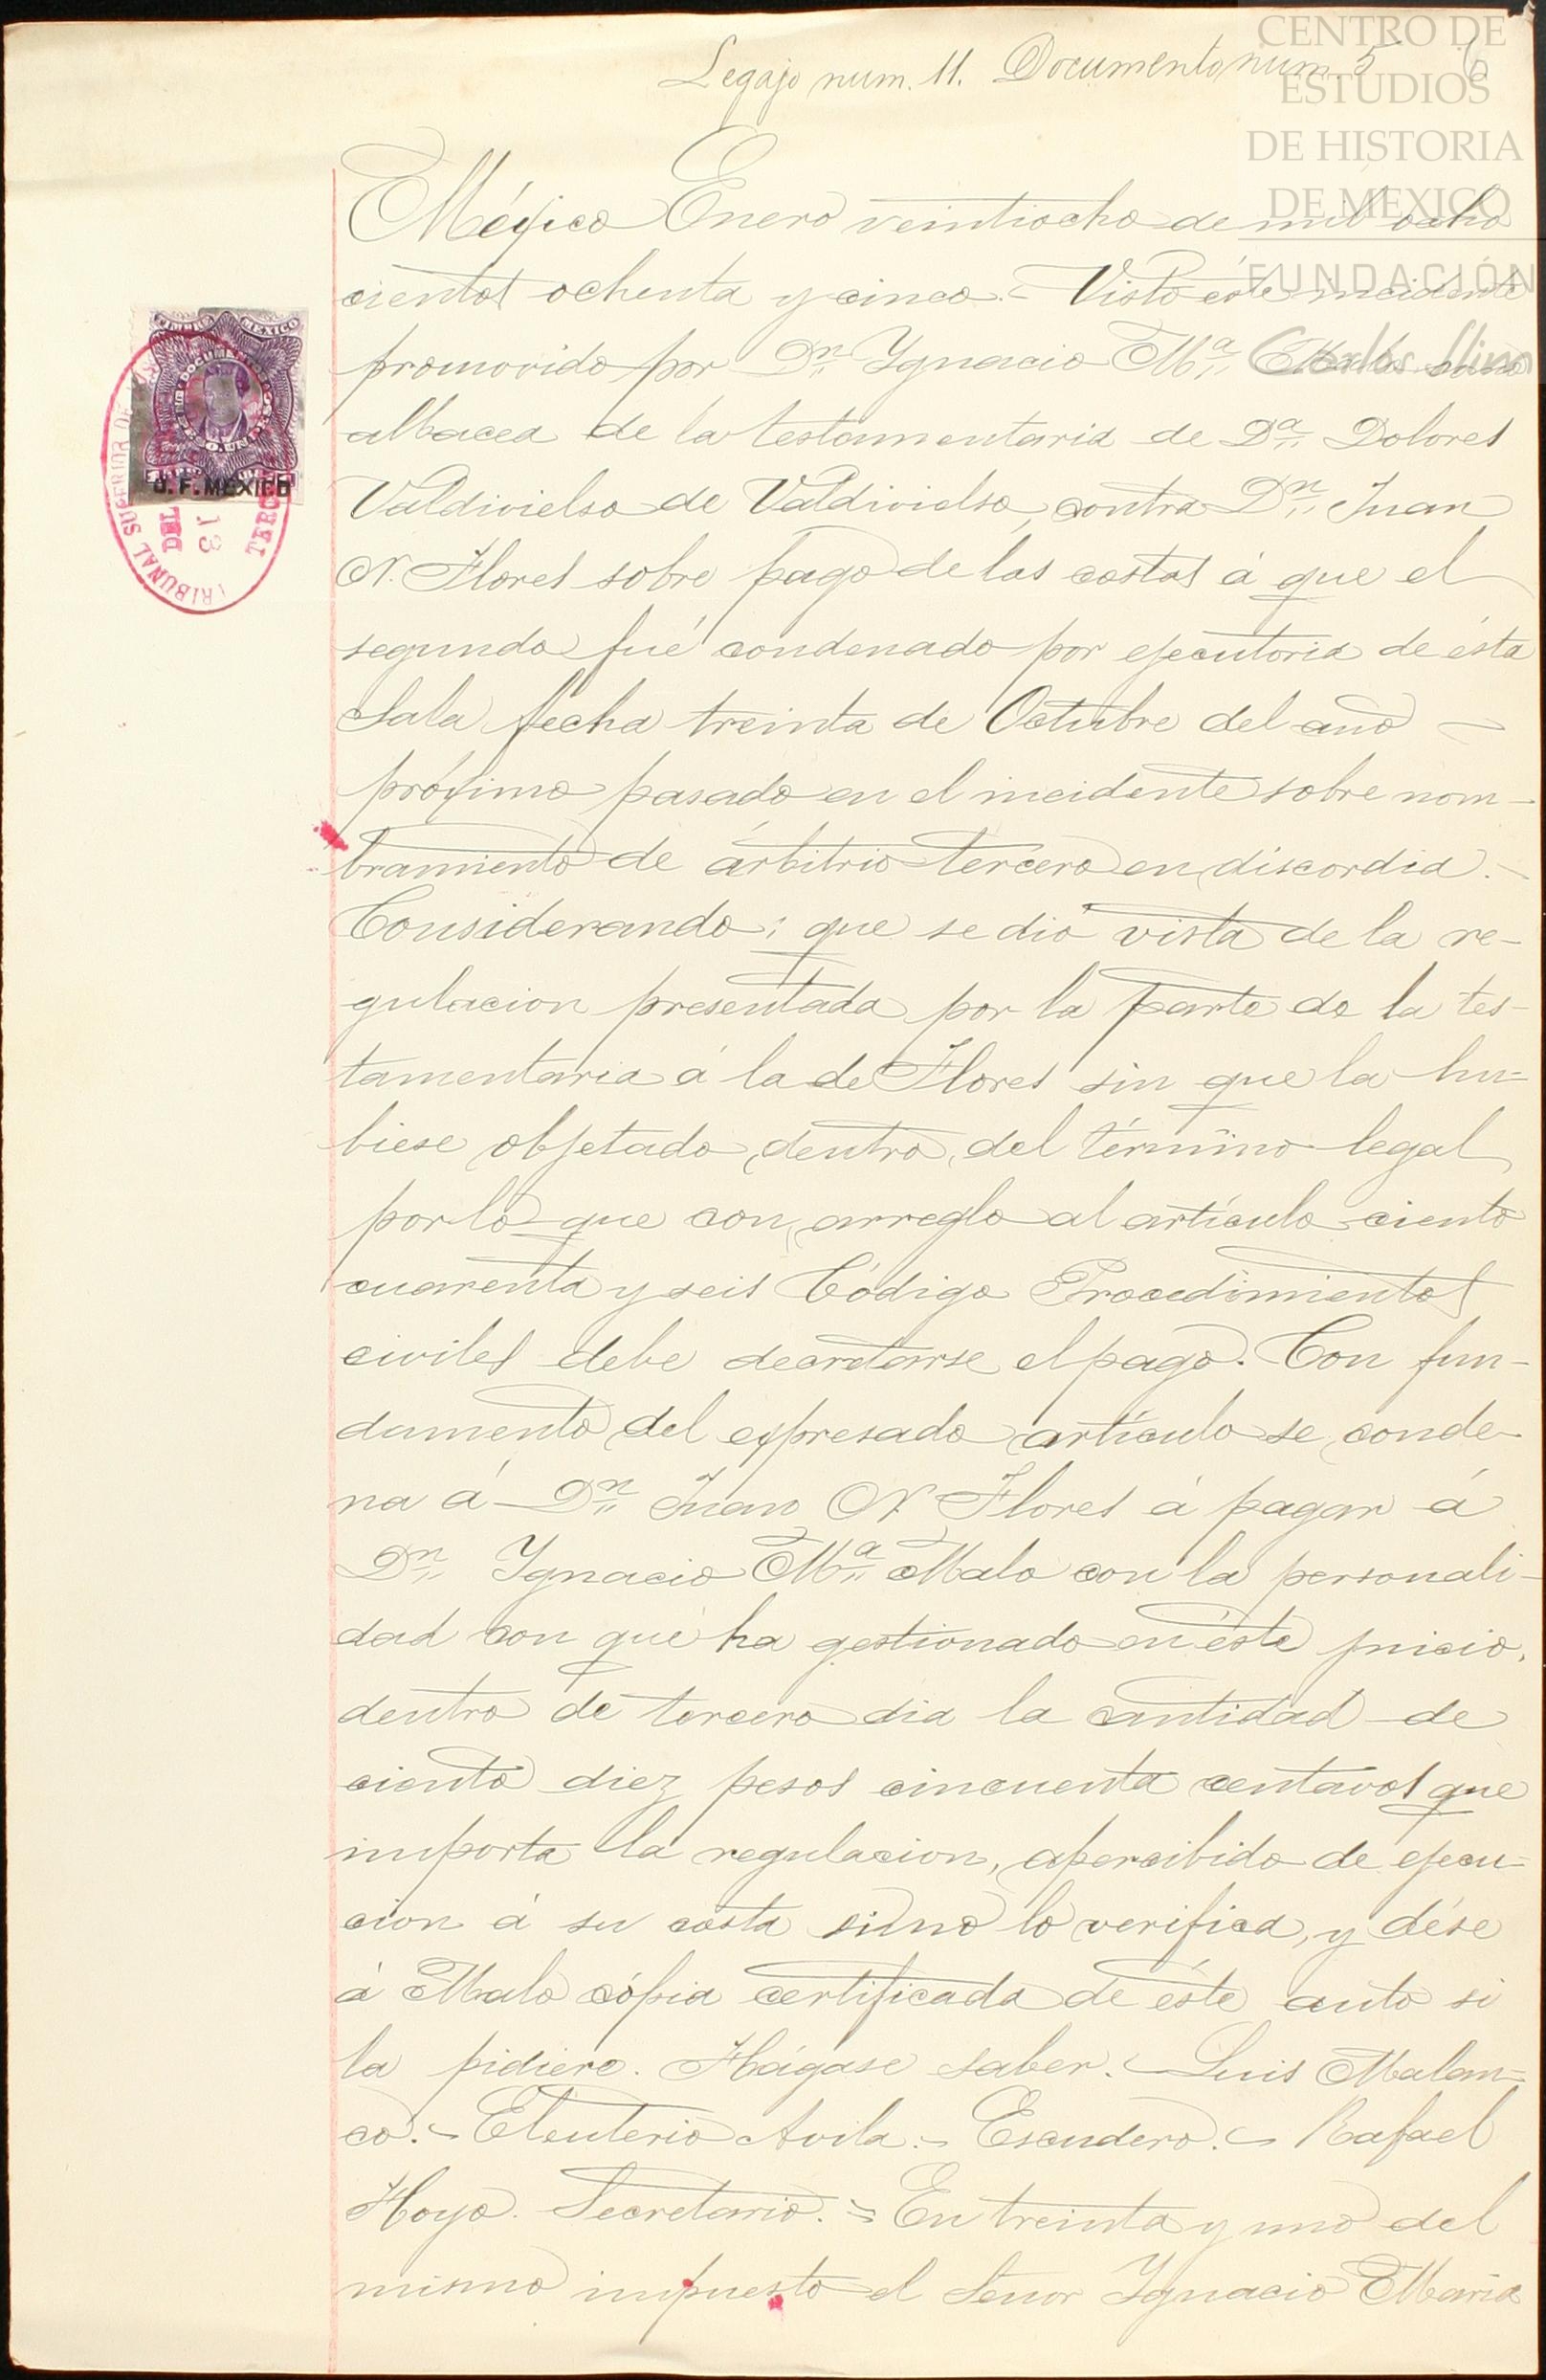 Legajo num. 11. Documento núm. 5 6
CENTRO DE
ESTUDIOS
DE HISTORIA
DE MÉXICO
FUNDACIÓN
Carlos Slim
Méjico Enero veintiocho de mil ocho
cientos ochenta y cinco.- Visto éste incidente
promovido por Dn. Ygnacio Ma. Malo como
albacea de la testamentaria de Da. Dolores
Valdivielso de Valdivielso, contra Dn. Juan
N. Flores sobre pago de las costas á que el
segundo fué condenado por ejecutoria de ésta
Sala fecha treinta de Octubre del año
prójimo pasado en el incidente sobre nom-
bramiento de árbitrio tercero en discordia.-
Considerando: que se dió vista de la re-
gulacion presentada por la parte de la tes-
tamentaria á la de Flores sin que la hu-
biese objetado dentro del término legal
por lo que con arreglo al artículo ciento
cuarenta y seis Código Procedimientos
civiles debe decretarse el pago. Con fun-
damento del espresado artículo se conde-
na á Dn. Juan N. Flores á pagar á
Dn. Ygnacio Ma. Malo con la personali-
dad con que ha gestionado en éste juicio,
dentro de tercero dia la cantidad de
ciento diez pesos cincuenta centavos que
importa la regulacion, apercibido de ejecu-
cion á su costa sino lo verifica, y dése
á Malo cópia certificada de éste auto si
la pidiere. Hágase saber.- Luis Malan-
co.- Eleuterio Avila.- Escudero.- Rafael
Hoyo. Secretario.= En treinta y uno del
mismo impuesto el Señor Ygnacio Maria
TIMBRE MEXICO
DOCUMENTOS
UN PESO
D. F. MEXICO
TRIBUNAL SUPERIOR DE
DEL
13